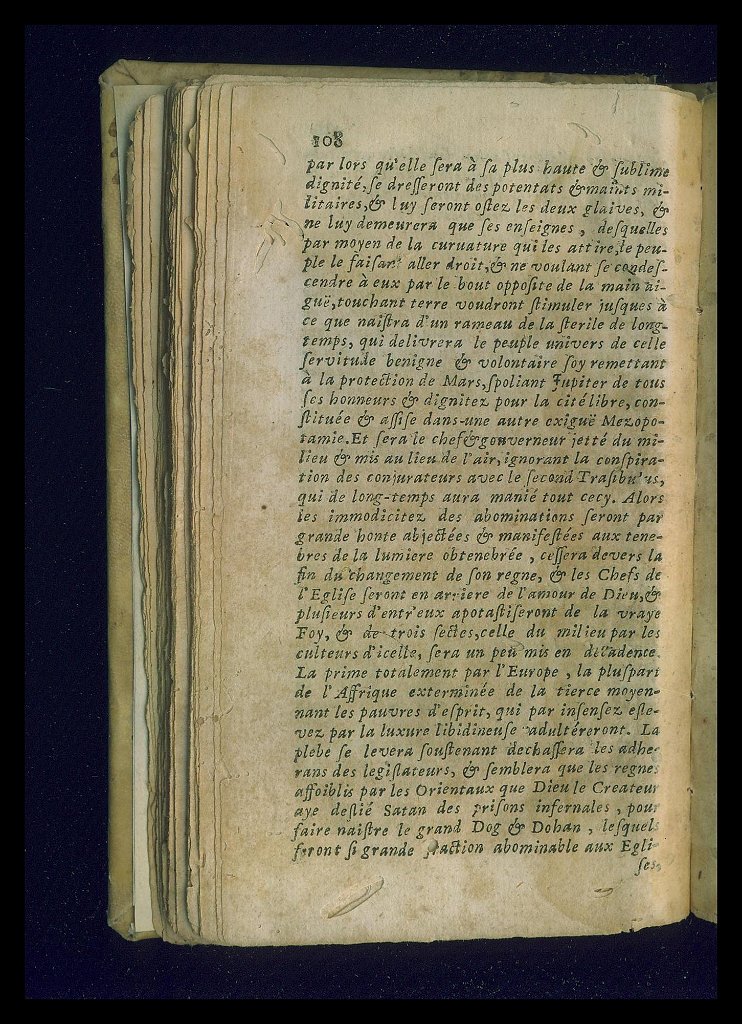 108
par lors qu'elle ſera à ſa plus haute & ſublime
dignité, ſe dreſſeront des potentats & maints mi-
litaires, & luy ſeront oſtez les deux glaives, &
ne luy demeurera que ſes enſeignes, deſquelles
par moyen de la curuature qui les attire, le peu-
ple le faiſant aller droit, & ne voulant ſe condeſ-
cendre à eux par le bout oppoſite de la main ai-
guë, touchant terre voudront ſtimuler juſques à
ce que naiſtra d'un rameau de la ſterile de long-
temps, qui delivrera le peuple univers de celle
ſervitude benigne & volontaire ſoy remettant
à la protection de Mars, ſpoliant Jupiter de tous
ſes honneurs & dignitez pour la cité libre, con-
ſtituée & aſſiſe dans-une autre exiguë Mezopo-
tamie. Et ſera le chef & gouverneur jetté du mi-
lieu & mis au lieu de l'air, ignorant la conſpira-
tion des conjurateurs avec le ſecond Traſibulus,
qui de long-temps aura manié tout cecy. Alors
les immodicitez des abominations ſeront par
grande honte abjectées & manifeſtées aux tene-
bres de la lumiere obtenebrée, ceſſera devers la
fin du changement de ſon regne, & les Chefs de
l'Egliſe ſeront en arriere de l'amour de Dieu, &
pluſieurs d'entr'eux apotaſtiſeront de la vraye
Foy, & de trois ſectes, celle du milieu par les
culteurs d'icelle, ſera un peu mis en decadence.
La prime totalement par l'Europe, la pluſpart
de l'Affrique exterminée de la tierce moyen-
nant les pauvres d'eſprit, qui par inſenſez eſle-
vez par la luxure libidineuſe adultéreront. La
plebe ſe levera ſouſtenant dechaſſera les adhe-
rans des legiſlateurs, & ſemblera que les regnes
affoiblis par les Orientaux que Dieu le Createur
aye deſlié Satan des priſons infernales, pour
faire naiſtre le grand Dog & Dohan, leſquels
feront ſi grande fraction abominable aux Egli-
ſes,